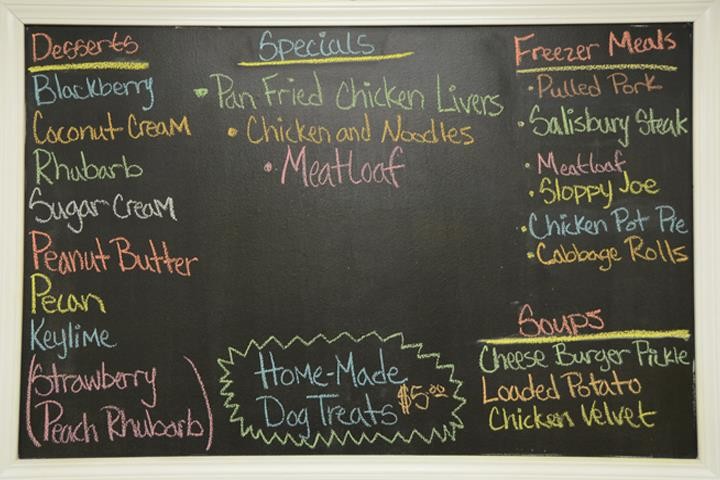 Desserts
Blackberry
Coconut Cream
Rhubarb
Sugar Cream
Peanut Butter
Pecan
Keylime
(Strawberry
Peach Rhubarb)
Specials
• Pan Fried Chicken Livers
• Chicken and Noodles
• Meatloaf
Home-Made
Dog Treats $5.00
Freezer Meals
• Pulled Pork
• Salisbury Steak
• Meatloaf
• Sloppy Joe
• Chicken Pot Pie
• Cabbage Rolls
Soups
Cheese Burger Pickle
Loaded Potato
Chicken Velvet